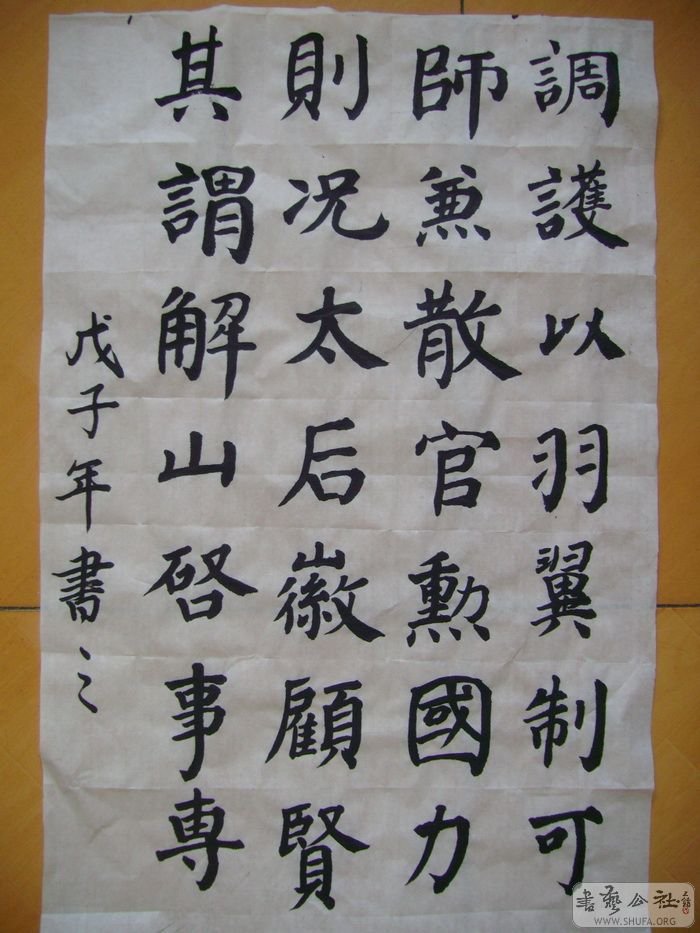 調護以羽翼制可
師兼散官勲國力
則况太后徽顧賢
其謂解山啓事専
戊子年書之
書藝公社
WWW.SHUFA.ORG